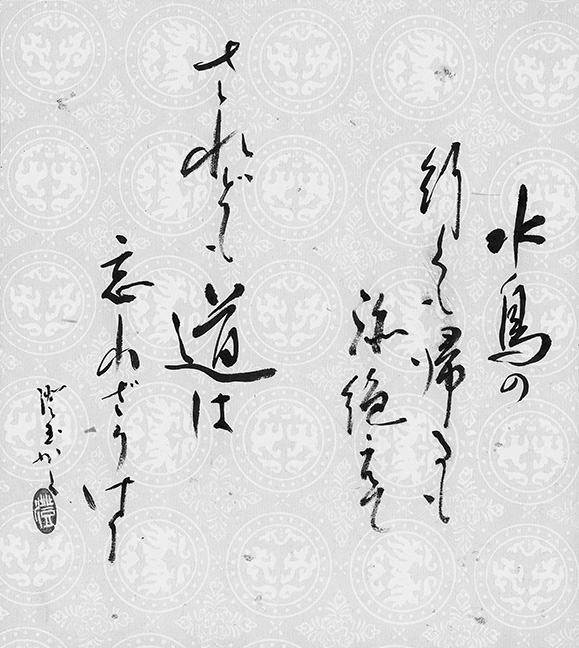 水鳥の
行くも帰るも
跡絶えて
されども道は
忘れざりけり